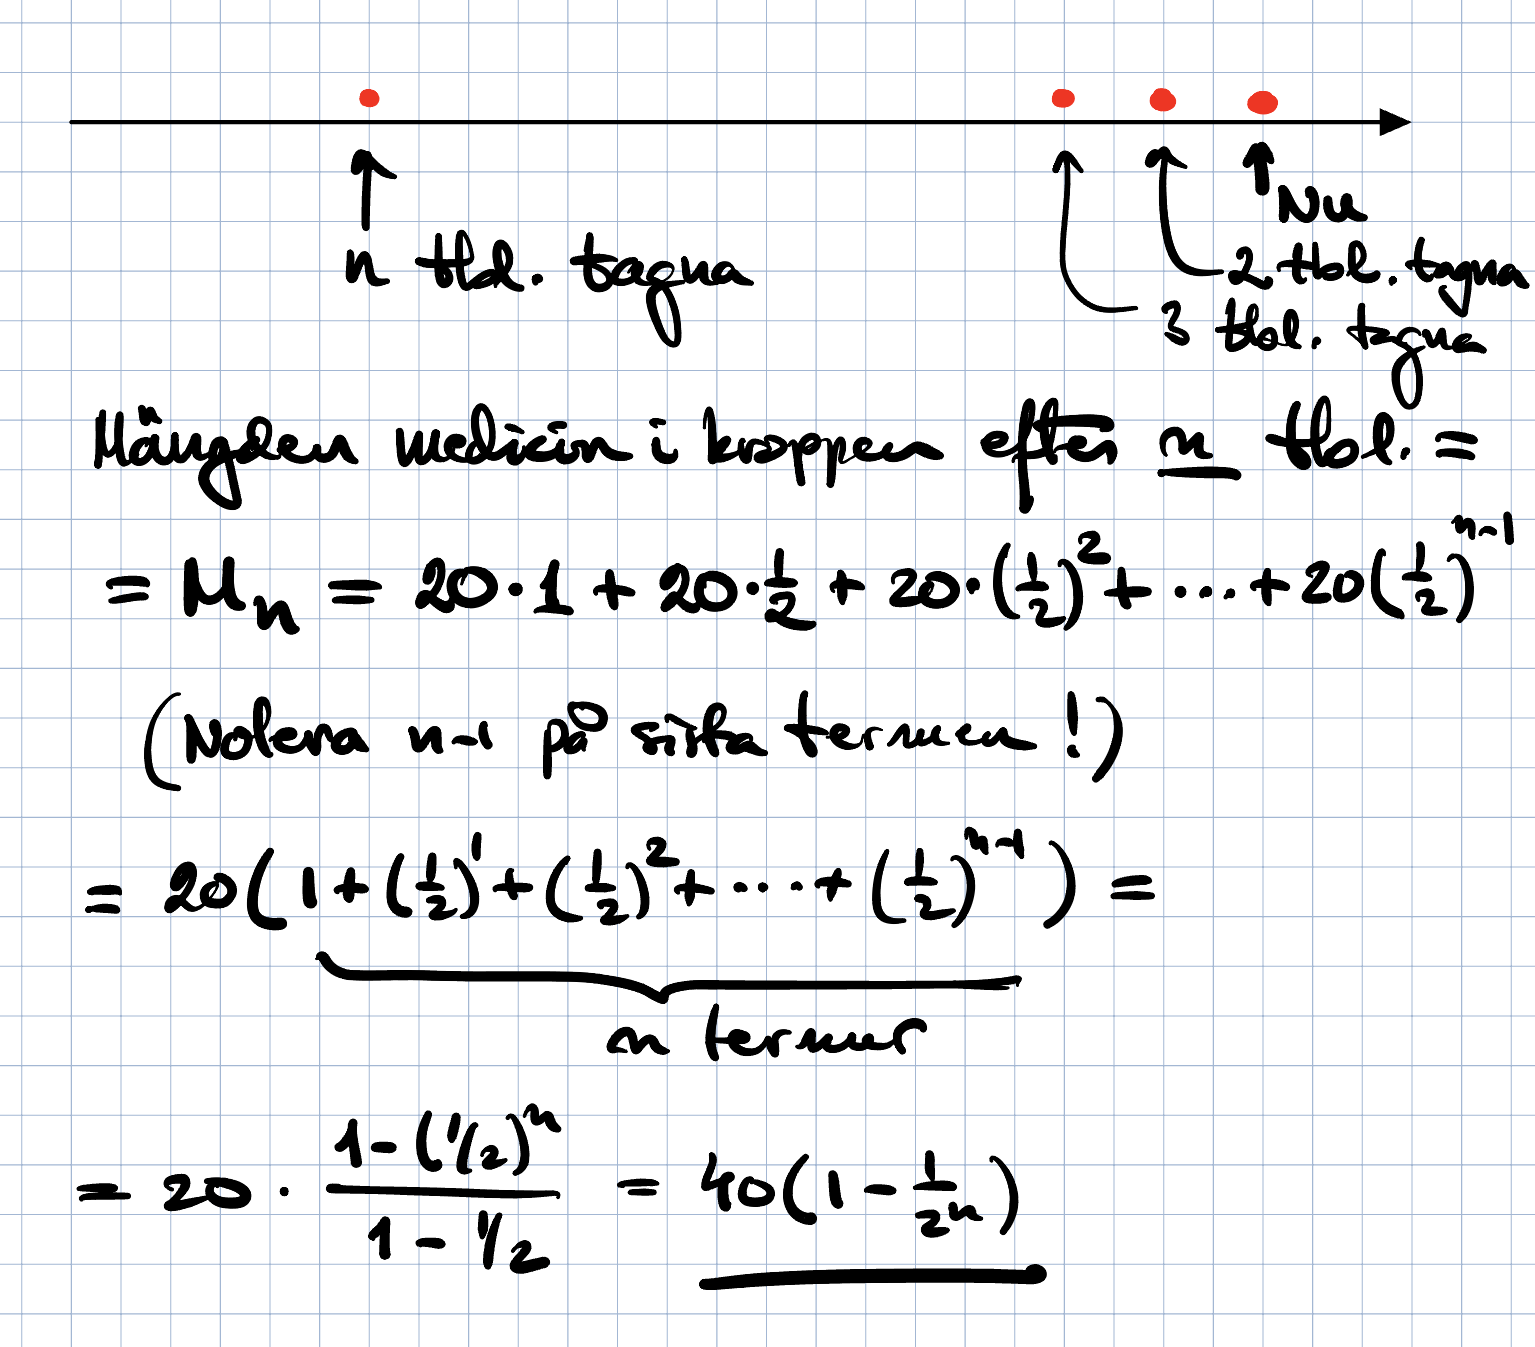 Nu
n tbl. tagna
2 tbl. tagna
3 tbl. tagna
Mängden medicin i kroppen efter n tbl. =
= Mn = 20·1 + 20·1/2 + 20·(1/2)^2 + ... + 20(1/2)^n-1
(Notera n-1 på sista termen!)
= 20(1 + (1/2)^1 + (1/2)^2 + ... + (1/2)^n-1) =
n termer
= 20 · (1-(1/2)^n)/(1-1/2) = 40(1 - 1/2^n)